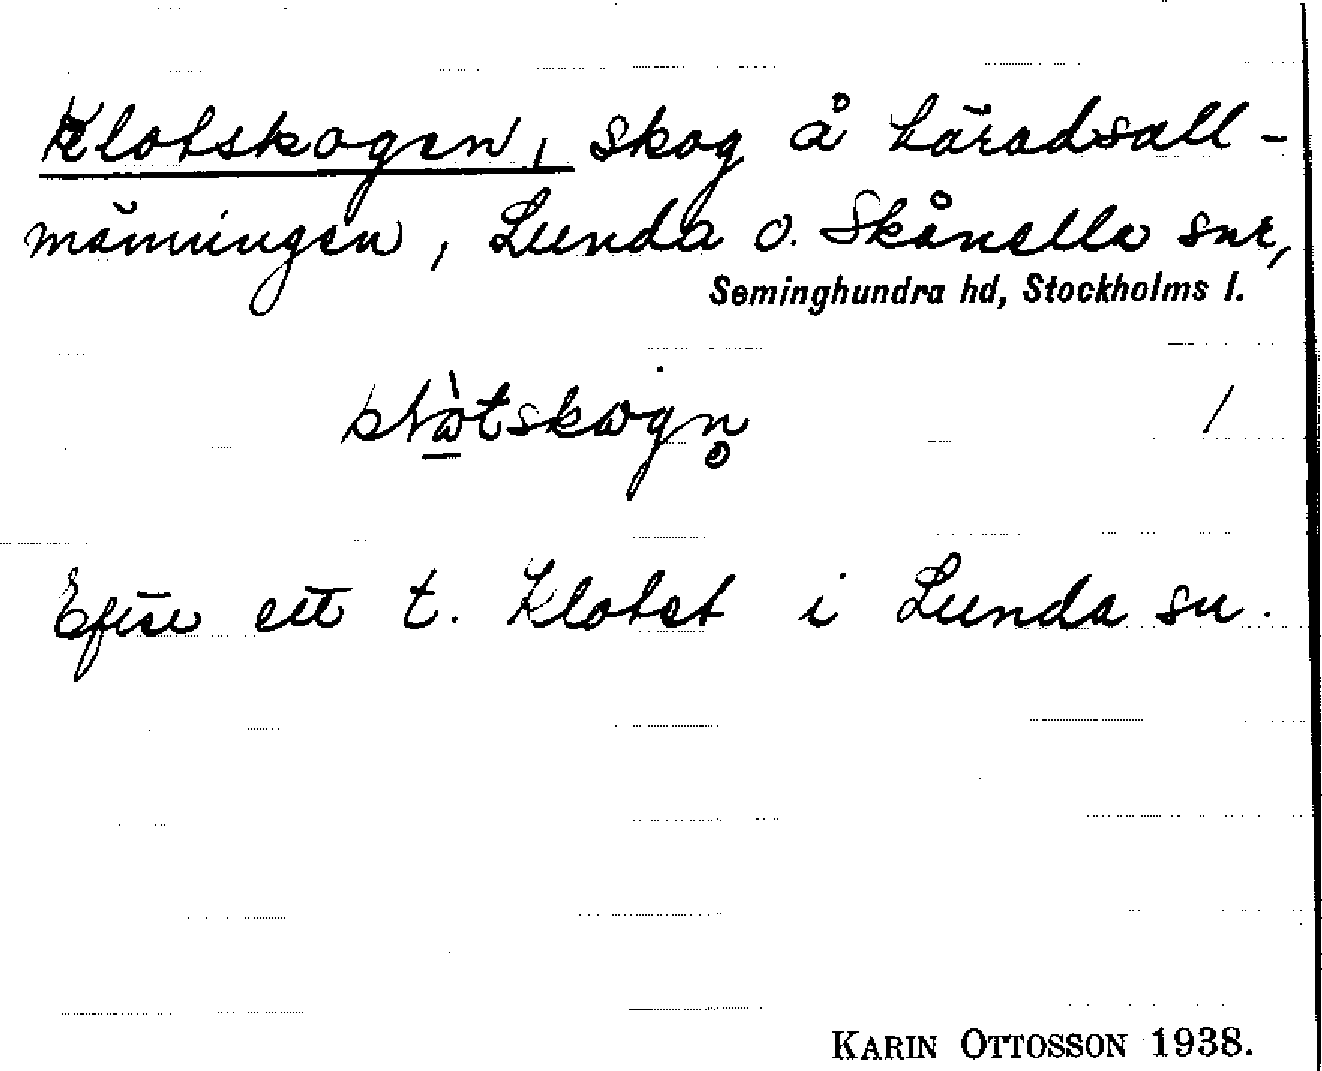 Klotskogen, skog å häradsall-
männingen, Lunda o. Skånella snr,
Seminghundra hd, Stockholms l.
/
Efter ett t. Klotet i Lunda sn.
KARIN OTTOSSON 1938.